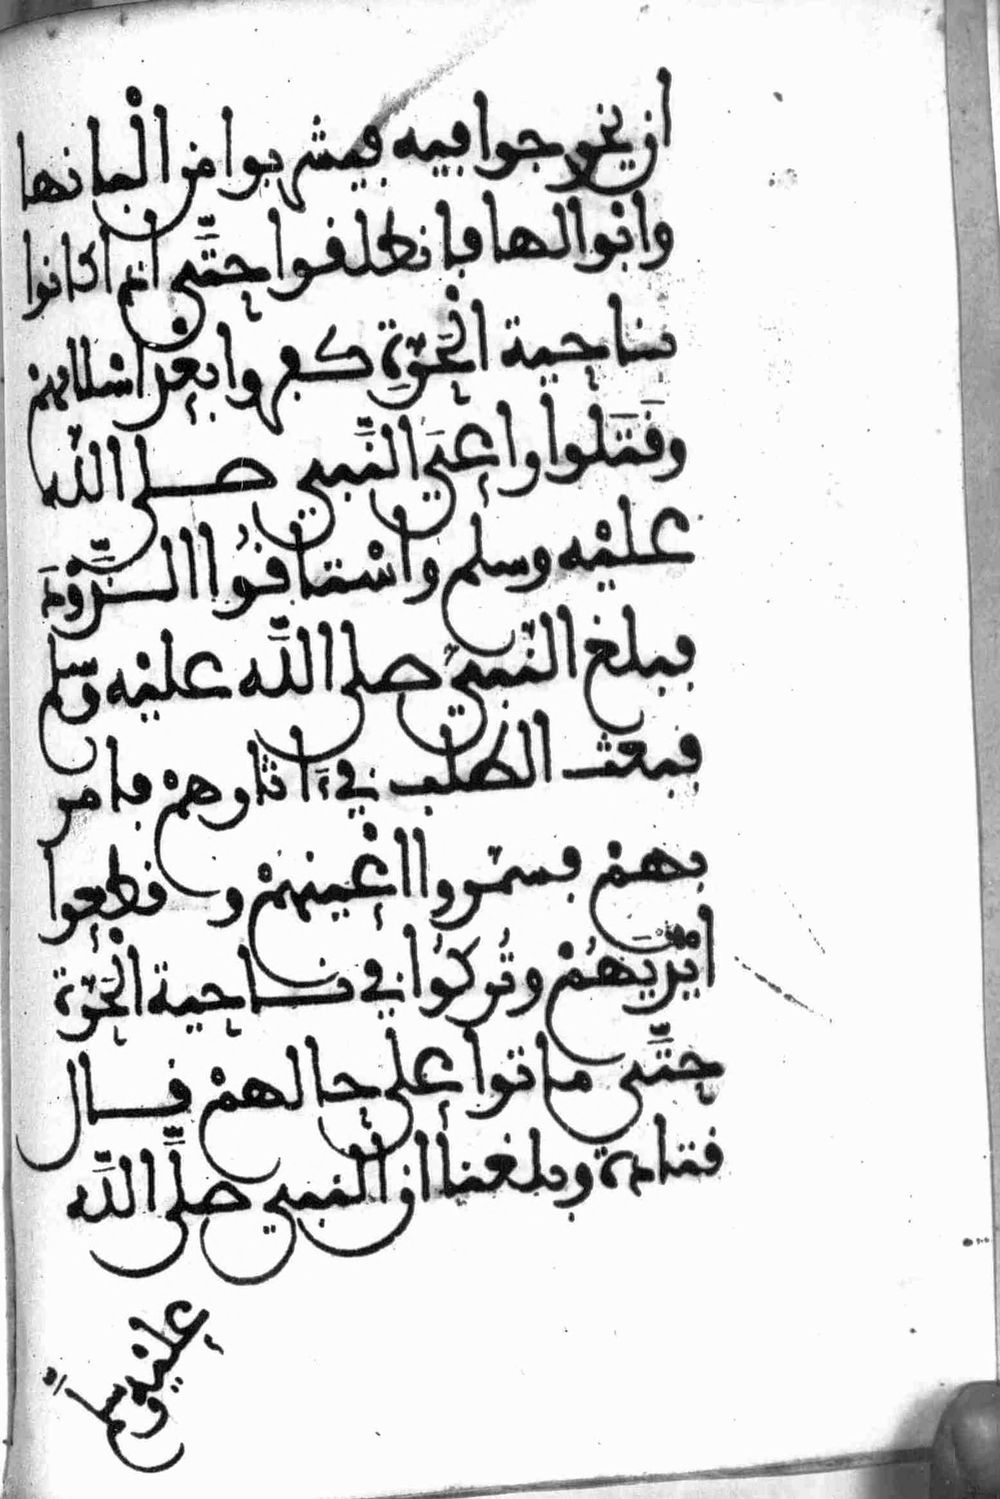 ان يخرجوا فيه فيشربوا من ألبانها
وابوالها فانطلقوا حتَّى اذا كانوا
بناحية الْحَرَّةِ كفروا بعد اسْلامهمْ
وقَتَلوا راعيَ النَّبيِ صلى الله
عليْه وسلم واسْتاقُوا الذَّوْدَ
فبلغ النَّبيَّ صلى اللَّه عليْه وسلم
فبعث الطلب في ءاثارهمْ فامر
بهمْ فسمَّروا اعْينهمْ وقطعوا
ايْديَهُمْ وتُركُوا في ناحية الْحَرَّة
حتَّى ماتوا على حالهمْ قال
قتادة وبلغنا ان النبي صلَّى اللَّه
عليْه وسلَّم